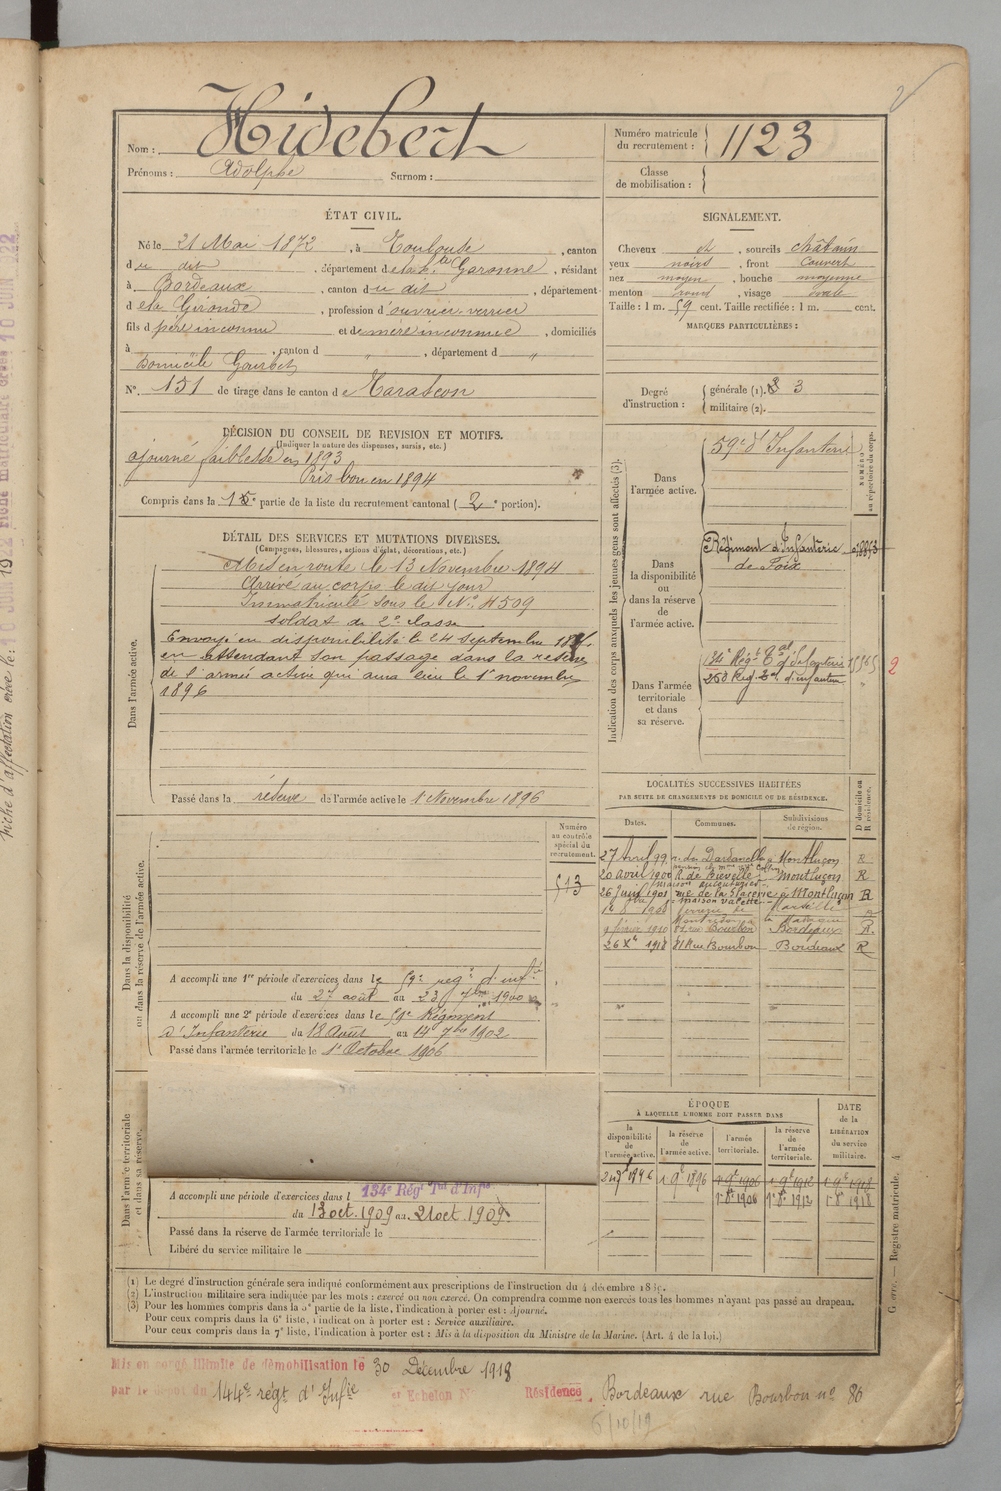 Nom : Hidebert
Prénoms : Adolphe Surnom :
Numéro matricule du recrutement : 1123
Classe de mobilisation :
ÉTAT CIVIL.
Né le 21 Mai 1872, à Toulouse, canton
du dit, département de la Hte Garonne, résidant
à Bordeaux, canton du dit, département
de la Gironde, profession d'ouvrier verrier
fils de père inconnu et de mère inconnue, domiciliés
à , canton d " , département d "
Domicile
N°. 151 de tirage dans le canton de Tarascon
DÉCISION DU CONSEIL DE REVISION ET MOTIFS.
(Indiquer la nature des dispenses, sursis, etc.)
ajourné faiblesse en 1893
Pris bon en 1894
Compris dans la 1e partie de la liste du recrutement cantonal (2e portion).
DÉTAIL DES SERVICES ET MUTATIONS DIVERSES.
(Campagnes, blessures, actions d'éclat, décorations, etc.)
Dans l'armée active.
Mis en route le 13 Novembre 1894
Arrivé au corps le dit jour
Immatriculé sous le N° 4509
soldat de 2e classe
Envoyé en disponibilité le 24 septembre 1896
en attendant son passage dans la réserve
de l'armée active qui aura lieu le 1r novembre
1896
Passé dans la réserve de l'armée active le 1r Novembre 1896
Dans la disponibilité ou dans la réserve de l'armée active.
Numéro au contrôle spécial du recrutement.
513
A accompli une 1re période d'exercices dans le 59e reg.t d'inf.ie
du 27 août au 23 7bre 1900
A accompli une 2e période d'exercices dans le 59e Régiment
d'Infanterie du 18 Août au 14 7bre 1902
Passé dans l'armée territoriale le 1r Octobre 1906
Dans l'armée territoriale et dans sa réserve.
A accompli une période d'exercices dans l 134e Régt Tal d'Infie
du 13 oct. 1909 au 21 oct. 1909.
Passé dans la réserve de l'armée territoriale le
Libéré du service militaire le
SIGNALEMENT.
Cheveux et, sourcils châtains
yeux noirs, front couvert
nez moyen, bouche moyenne
menton rond, visage ovale
Taille : 1 m. 59 cent. Taille rectifiée : 1 m. cent.
MARQUES PARTICULIÈRES :
Degré d'instruction : générale (1). 3
militaire (2).
Indication des corps auxquels les jeunes gens sont affectés (3).
NUMÉRO au répertoire du corps.
Dans l'armée active. 59e d'Infanterie
Dans la disponibilité ou dans la réserve de l'armée active. Régiment d'Infanterie
de Foix
Dans l'armée territoriale et dans sa réserve. 134e Régt Tal d'Infanterie
2
LOCALITÉS SUCCESSIVES HABITÉES
PAR SUITE DE CHANGEMENTS DE DOMICILE OU DE RÉSIDENCE.
Dates. Communes. Subdivisions de région. D domicile ou R résidence.
27 Avril 99 r. des Dardanelles à Montluçon R
20 avril 1900 Montluçon R
26 Juin 1901 rue de la Glacerie à Montluçon R
maison Valette
9 février 1910 81 rue Bourbon Bordeaux R.
26 Xbre 1918 81 Rue Bourbon Bordeaux R
ÉPOQUE
À LAQUELLE L'HOMME DOIT PASSER DANS
DATE de la LIBÉRATION du service militaire.
la disponibilité de l'armée active. la réserve de l'armée active. l'armée territoriale. la réserve de l'armée territoriale.
1r 9e 1896 1r 9e 1906 1r 9e 1912 1r 9e 1918
1r 8e 1906 1r 8e 1912 1r 8e 1918
(1) Le degré d'instruction générale sera indiqué conformément aux prescriptions de l'instruction du 4 décembre 1889.
(2) L'instruction militaire sera indiquée par les mots : exercé ou non exercé. On comprendra comme non exercés tous les hommes n'ayant pas passé au drapeau.
(3) Pour les hommes compris dans la 5e partie de la liste, l'indication à porter est : Ajourné.
Pour ceux compris dans la 6e liste, l'indication à porter est : Service auxiliaire.
Pour ceux compris dans la 7e liste, l'indication à porter est : Mis à la disposition du Ministre de la Marine. (Art. 4 de la loi.)
Registre matricule. 4
Mis en congé illimité de démobilisation le 30 Décembre 1918
par le dépôt du 144e régt d'Infie Echelon N° Résidence, Bordeaux rue Bourbon n° 86
6/10/19